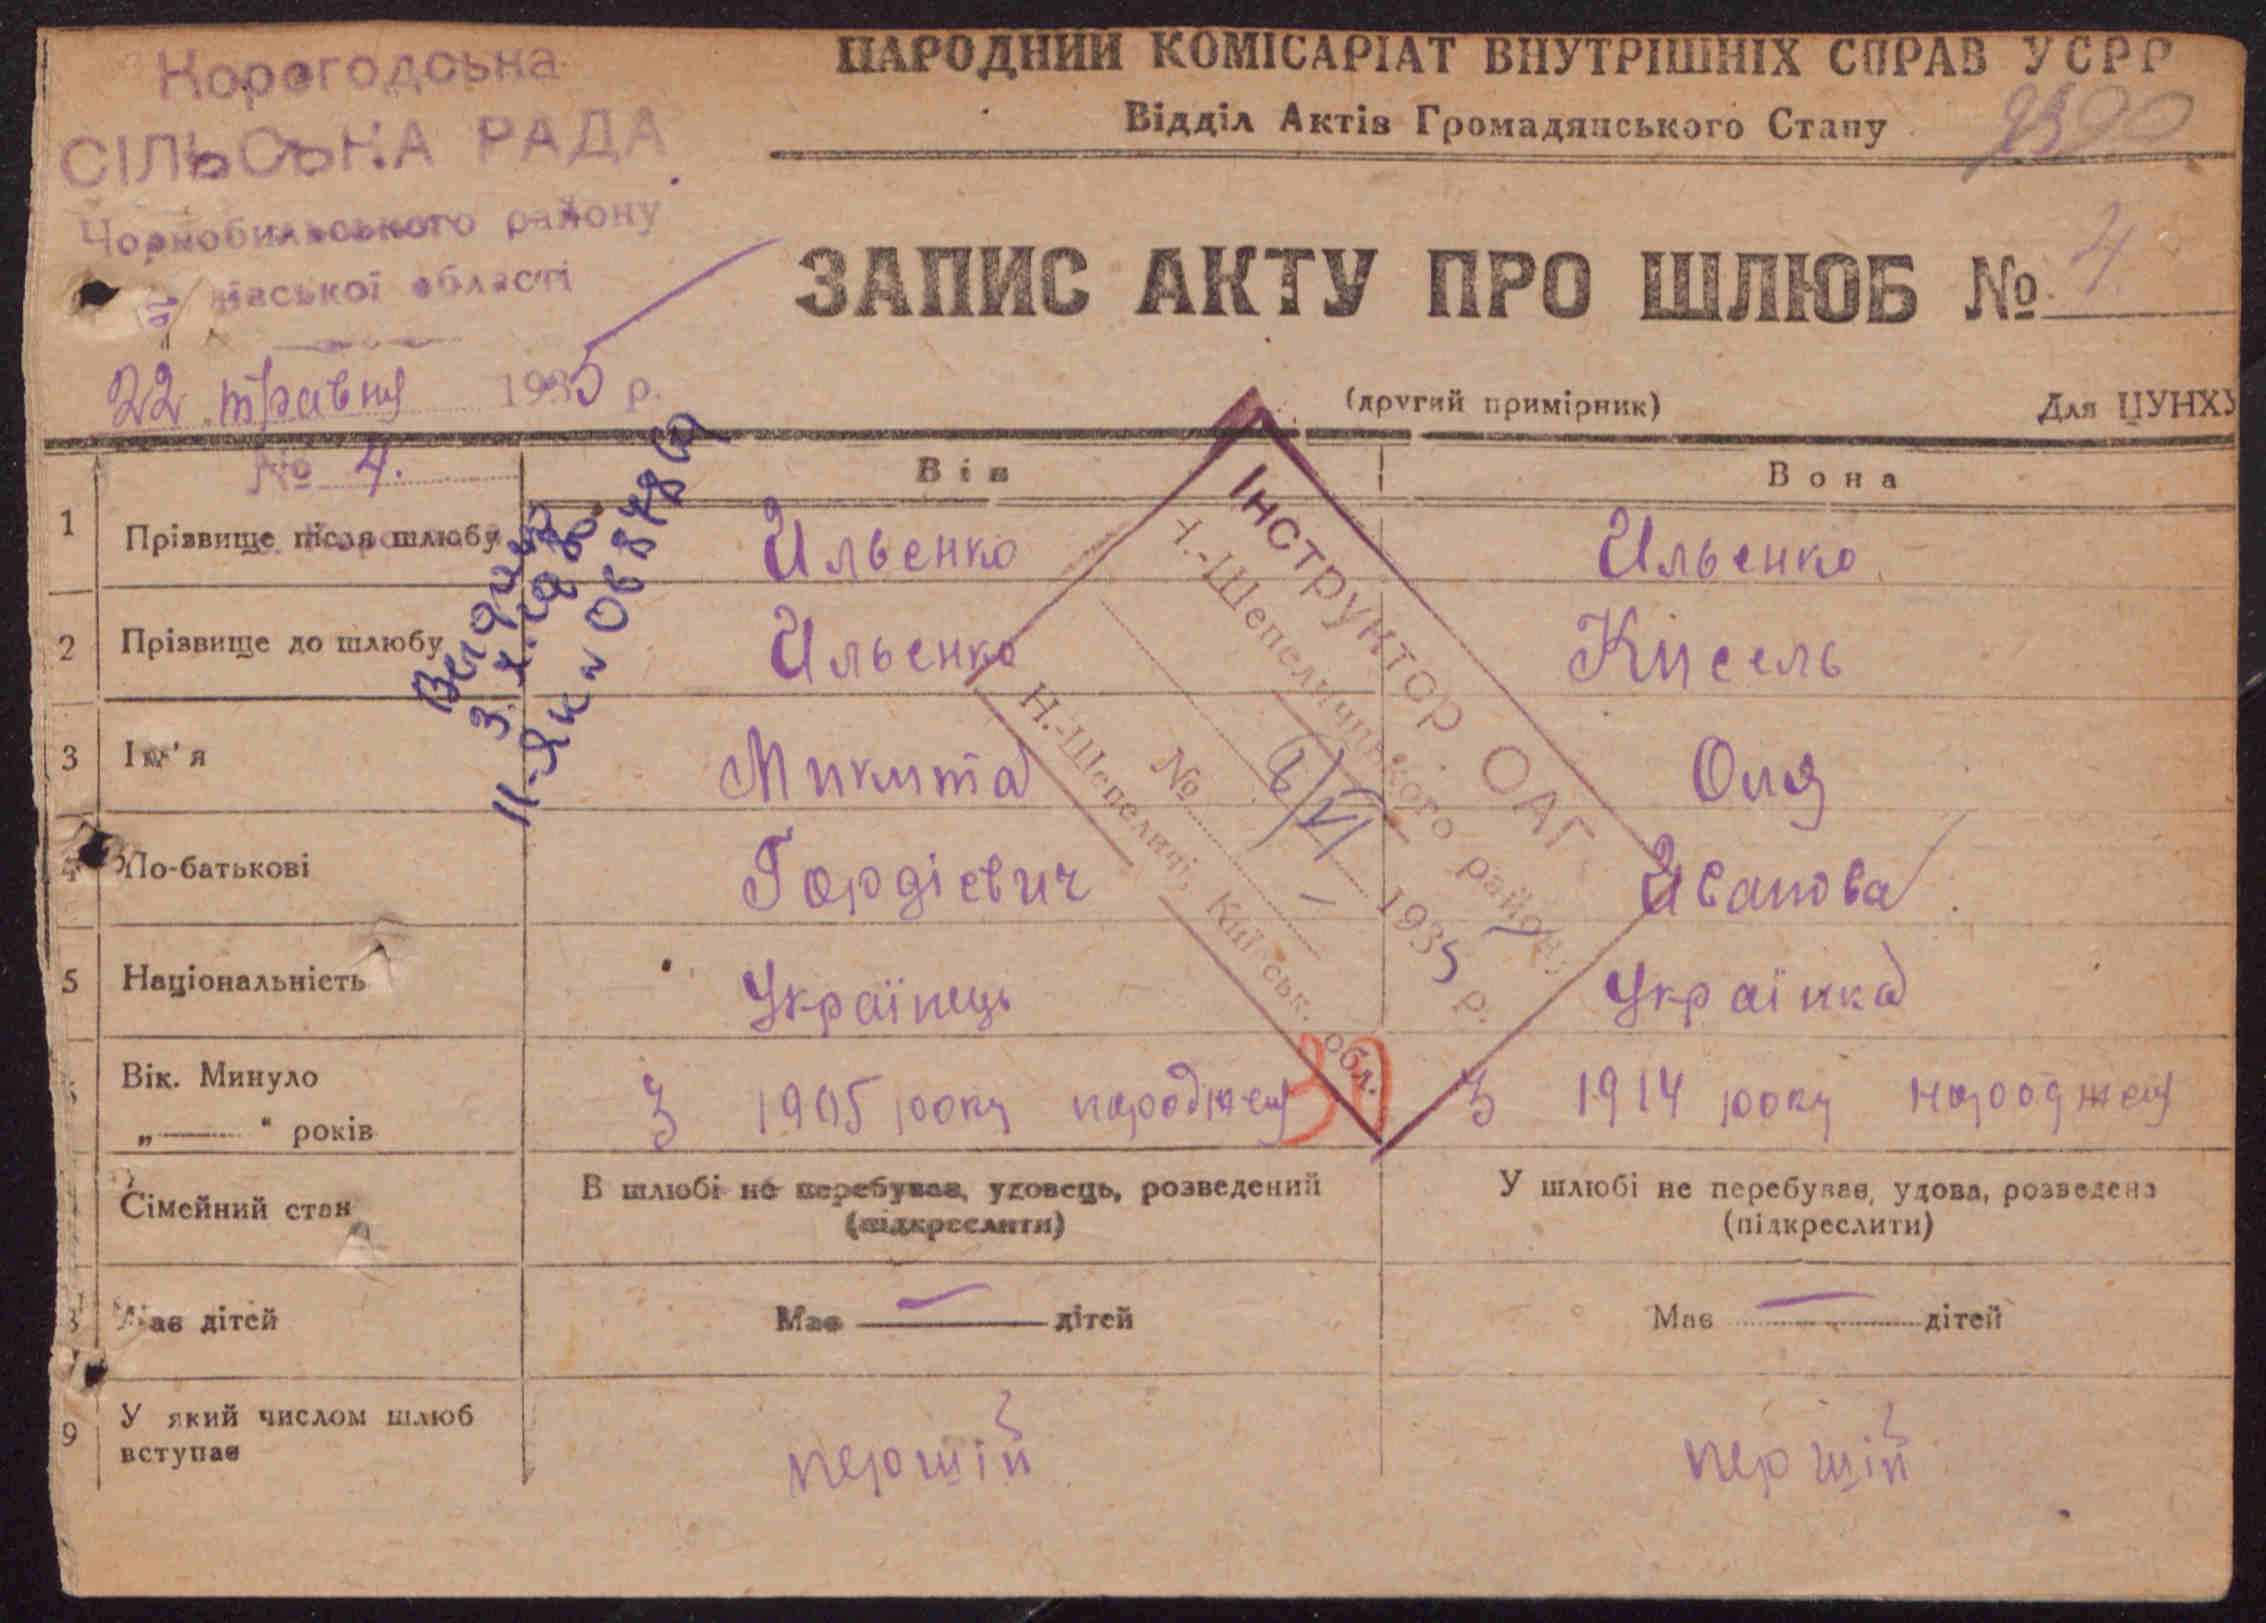 Корогодська
СІЛЬСЬКА РАДА
Чорнобильського району
області
22 травня 1935 р.
№ 4.
НАРОДНИЙ КОМІСАРІАТ ВНУТРІШНІХ СПРАВ УСРР
Відділ Актів Громадянського Стану
ЗАПИС АКТУ ПРО ШЛЮБ № 4
(другий примірник) Для ЦУНХУ
Він Вона
1 Прізвище після шлюбу Ильенко Ильенко
2 Прізвище до шлюбу Ильенко Кисель
3 Ім'я Микита Оля
4 По-батькові Гордієвич Иванова
5 Національність Українець Українка
Вік. Минуло
„ — “ років З 1905 року народжен З 1914 року народжен
Сімейний стан В шлюбі не перебував, удовець, розведений У шлюбі не перебував, удова, розведена
(підкреслити) (підкреслити)
8 Має дітей Має — дітей Має — дітей
9 У який числом шлюб
вступає першій першій
Інструктор ОАГС
Н.-Шепелицького району
1935 р.
№
Н.-Шепеличі, Київськ. обл.
30